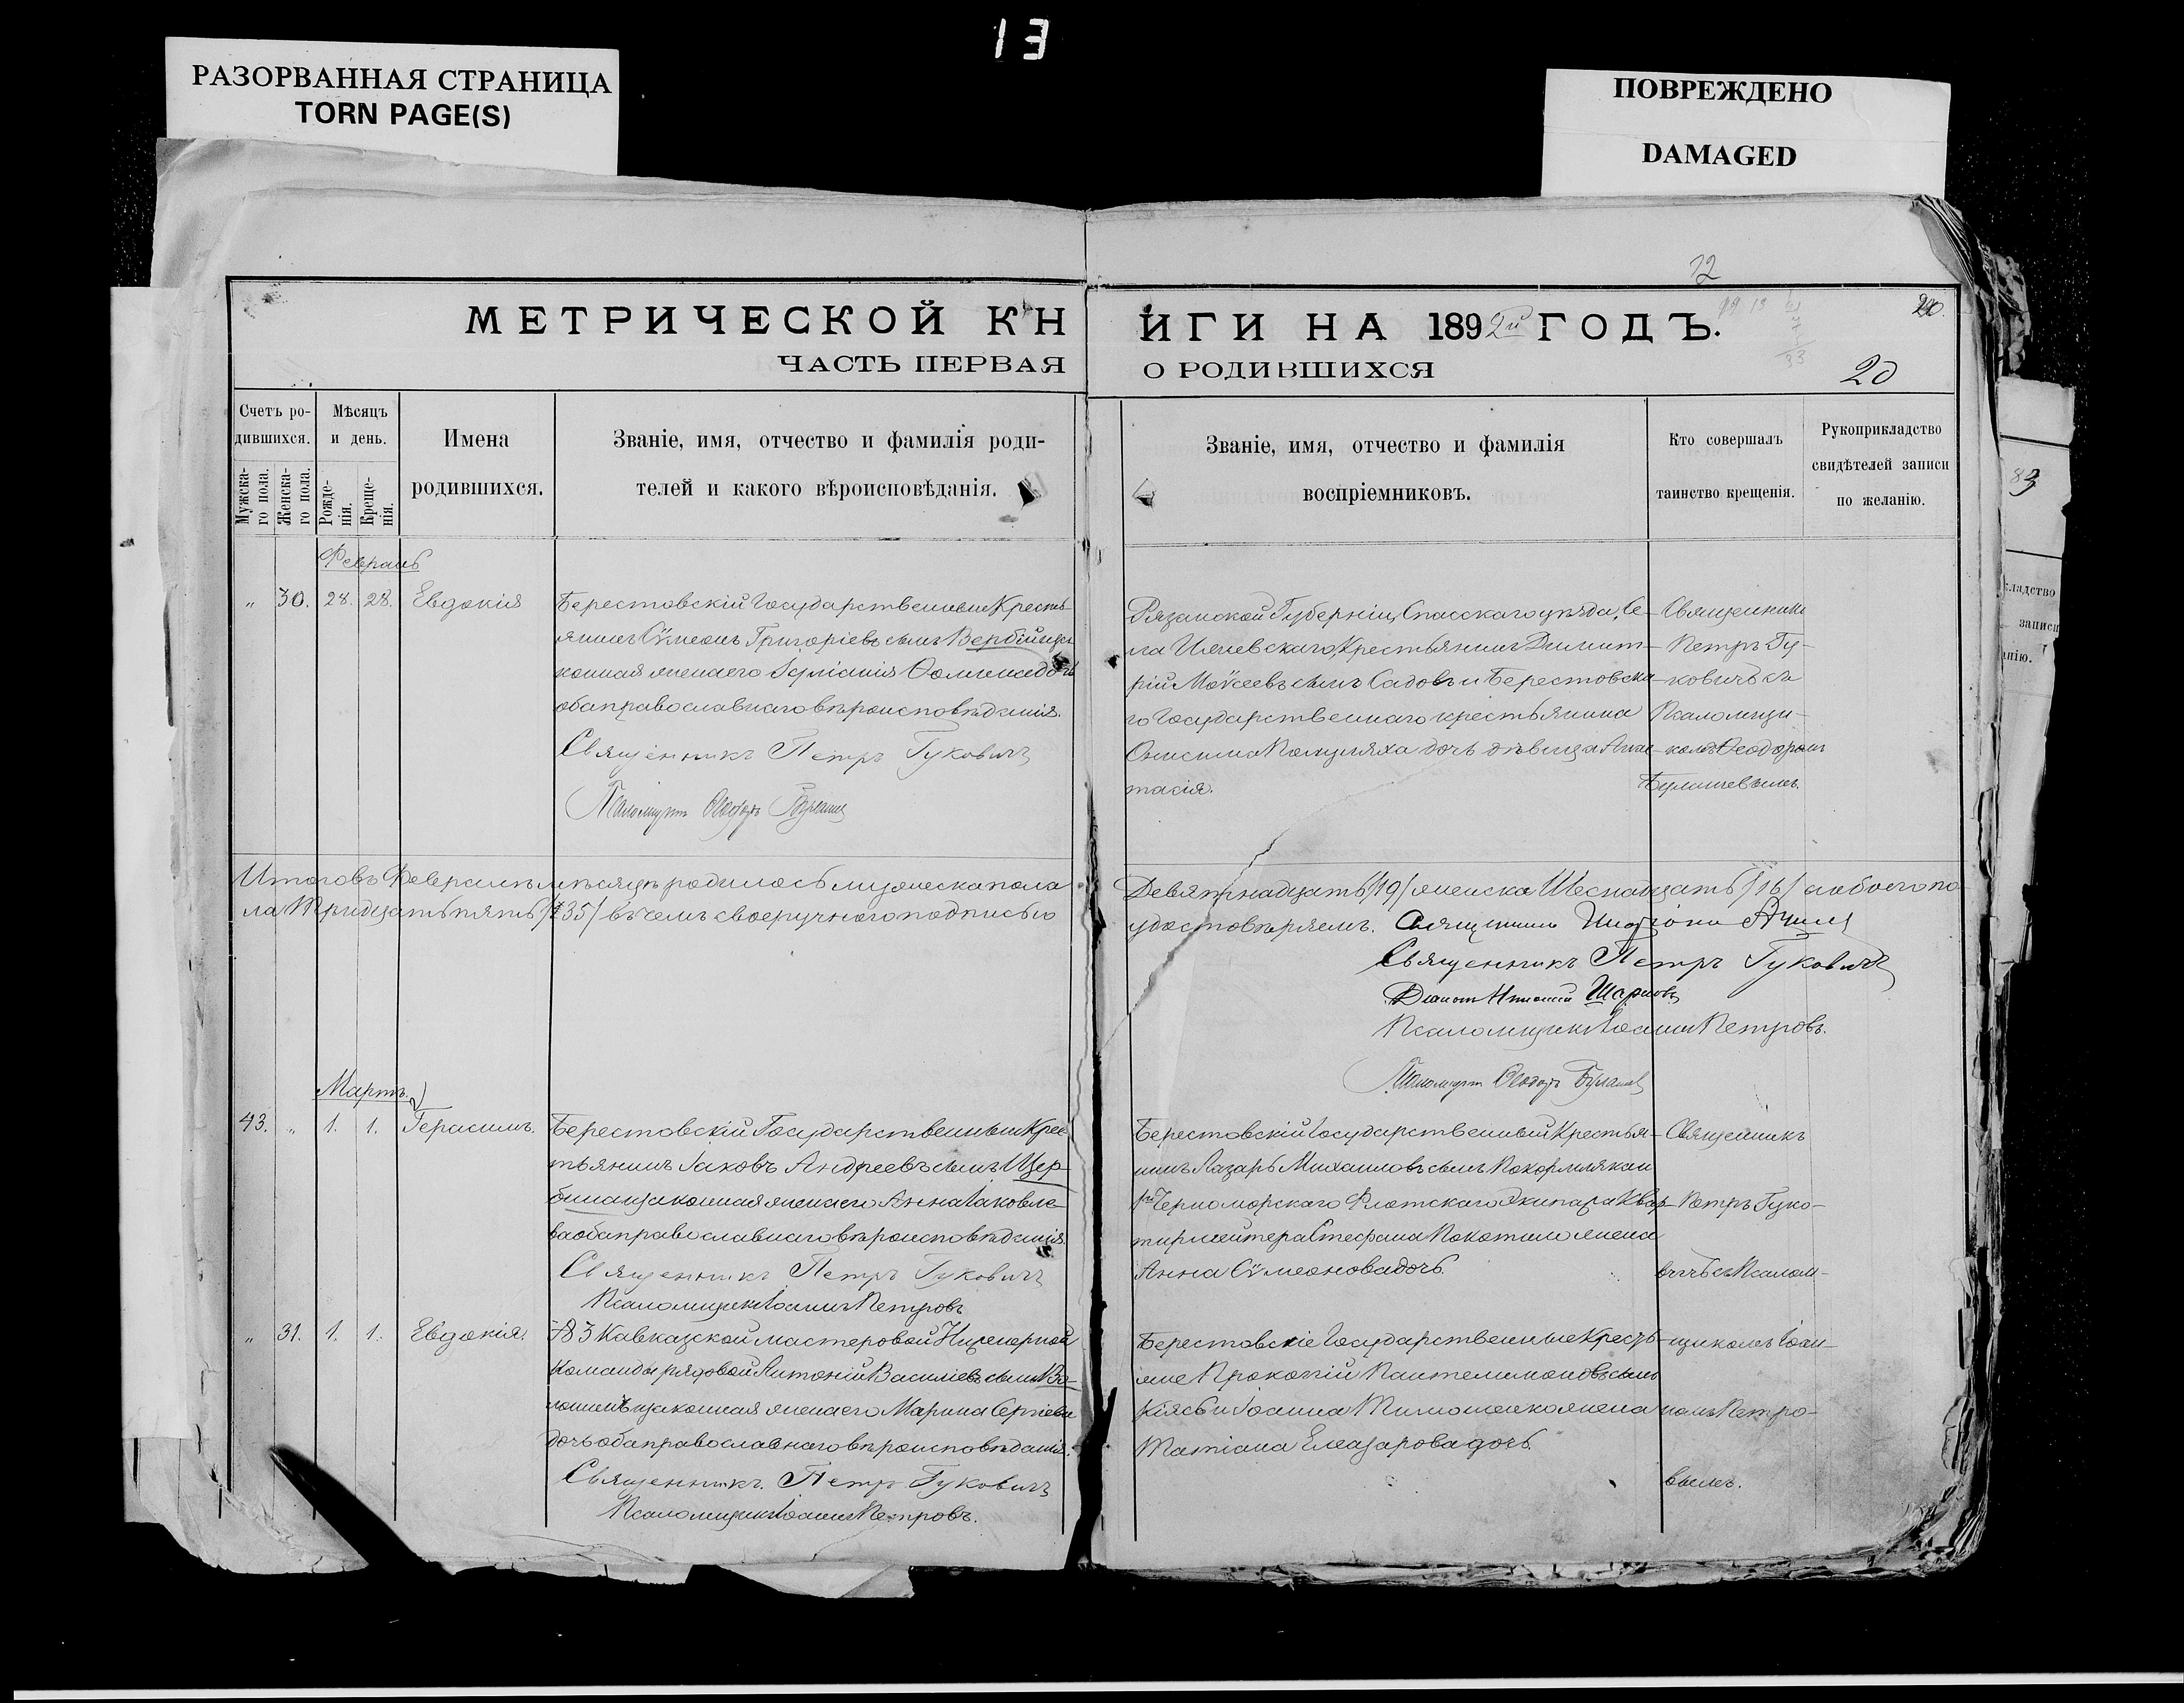 13
РАЗОРВАННАЯ СТРАНИЦА
TORN PAGE(S)
ПОВРЕЖДЕНО
DAMAGED
12
20.
МЕТРИЧЕСКОЙ КН
ЧАСТЬ ПЕРВАЯ
ИГИ НА 1892й ГОДЪ.
О РОДИВШИХСЯ
20
Счетъ ро-
дившихся.
Мужска-
го пола.
Женска-
го пола.
Мѣсяцъ
и день.
Рожде-
нія.
Креще-
нія.
Имена
родившихся.
Званіе, имя, отчество и фамилія роди-
телей и какого вѣроисповѣданія.
Званіе, имя, отчество и фамилія
воспріемниковъ.
Кто совершалъ
таинство крещенія.
Рукоприкладство
свидѣтелей записи
по желанію.
Февраль
„ 30. 28. 28. Евдокія
Берестовскій Государственный Кресть-
янинъ Сѵмеонъ Григоріевъ сынъ
конная жена его Іуліанія Ѳомина дочь
оба православнаго вѣроисповѣданія.
Священникъ Петръ Гуковичъ
Рязанской Губерніи, Спасскаго уѣзда, Се-
ла Ижевскаго, Крестьянинъ Димит-
рій Моѵсеевъ сынъ Садовъ и Берестовска-
го Государственнаго крестьянина
Онисима дочь дѣвица Анас-
тасія.
Священникъ
Петръ Гу-
ковичъ съ
Псаломщи-
комъ Ѳеодоромъ
Итого въ Февралѣ мѣсяцѣ родилось мужеска пола
Девятнадцать /19/ женска Шеснадцать /16/ а обоего по-
ла Тридцать пять /35/ въ чемъ своеручною подписью
удостовѣряемъ. Священникъ
Священникъ Петръ Гуковичъ
Псаломщикъ Іоаннъ Петровъ.
Мартъ.
43. „ 1. 1. Герасимъ.
Берестовскій Государственный Крес-
тьянинъ Іаковъ Андреевъ сынъ Щер-
бина и законная жена его Анна Іаковле-
ва оба православнаго вѣроисповѣданія.
Священникъ Петръ Гуковичъ
Псаломщикъ Іоаннъ Петровъ
Берестовскій Государственный Крестья-
нинъ Лазарь Михаиловъ сынъ
Черноморскаго Флотскаго Экипажа Квар-
тирмейтера Стефана Покотило жена
Анна Сѵмеонова дочь.
Священникъ
Петръ Гуко-
вичъ съ Псалом-
„ 31. 1. 1. Евдокія.
3 Кавказской мастеровой Инженерной
Команды рядовой Антоній Василіевъ сынъ Во-
законная жена его Марина Сергіева
дочь оба православнаго вѣроисповѣданія.
Священникъ. Петръ Гуковичъ
Псаломщикъ Іоаннъ Петровъ.
Берестовскіе Государственные Кресть-
яне Прокопій Пантелимоновъ сынъ
Кіясь и Іоанна Тимошенко жена
Татіана Елеазарова дочь.
щикомъ Іоан-
номъ Петро-
вымъ.
83
кладство
записи
анію.